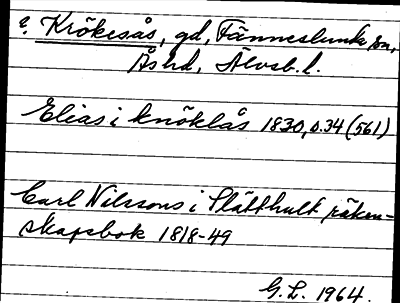 ?. Krökesås, gd, Fänneslunda sn,
Ås hd, Älvsb. l.
Elias i knöklås 1830, s. 34 (561)
Carl Nilssons i Slätthult räken-
skapsbok 1818-49
G. L. 1964.